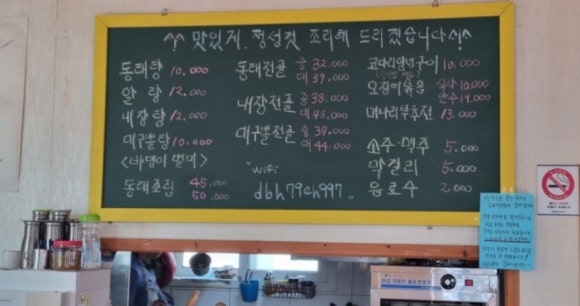 ^^ 맛있게. 정성껏 조리해 드리겠습니다 ^^
동태탕 10.000
알 탕 12.000
내장탕 12.000
대구뽈탕 10.000
동태조림 45.000
50.000
동태전골 중 32.000
대 39.000
내장전골 중 38.000
대 45.000
대구뽈전골 중 39.000
대 44.000
"wifi
dbh79ch997
코다리양념구이 10.000
오징어볶음 식사 10.000
안주 14.000
미나리부추전 13.000
소주·맥주 5.000
막걸리 5.000
음료수 2.000